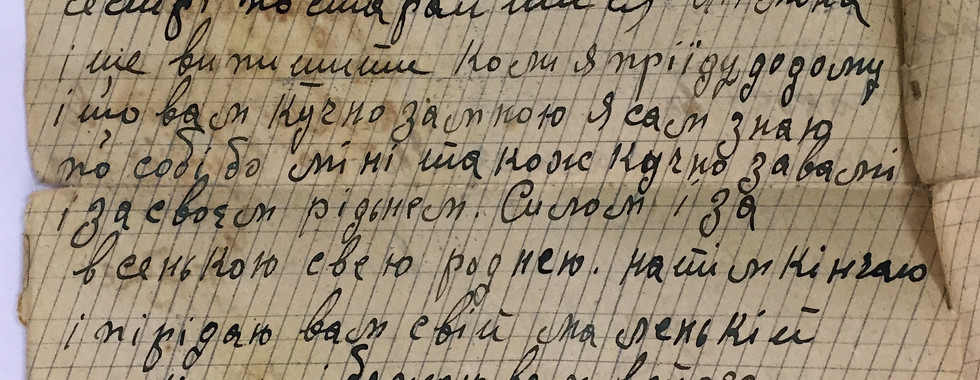 сестрі постараютися
і ше випишити коли я пріїду додому
і шо вам кучно за мною я сам знаю
по собі бо міні также кучно за вамі
і за своєм рідьнем. Силом і за
всенькою свєю роднею. натім кінчаю
і пірідаю вам свій маленькій